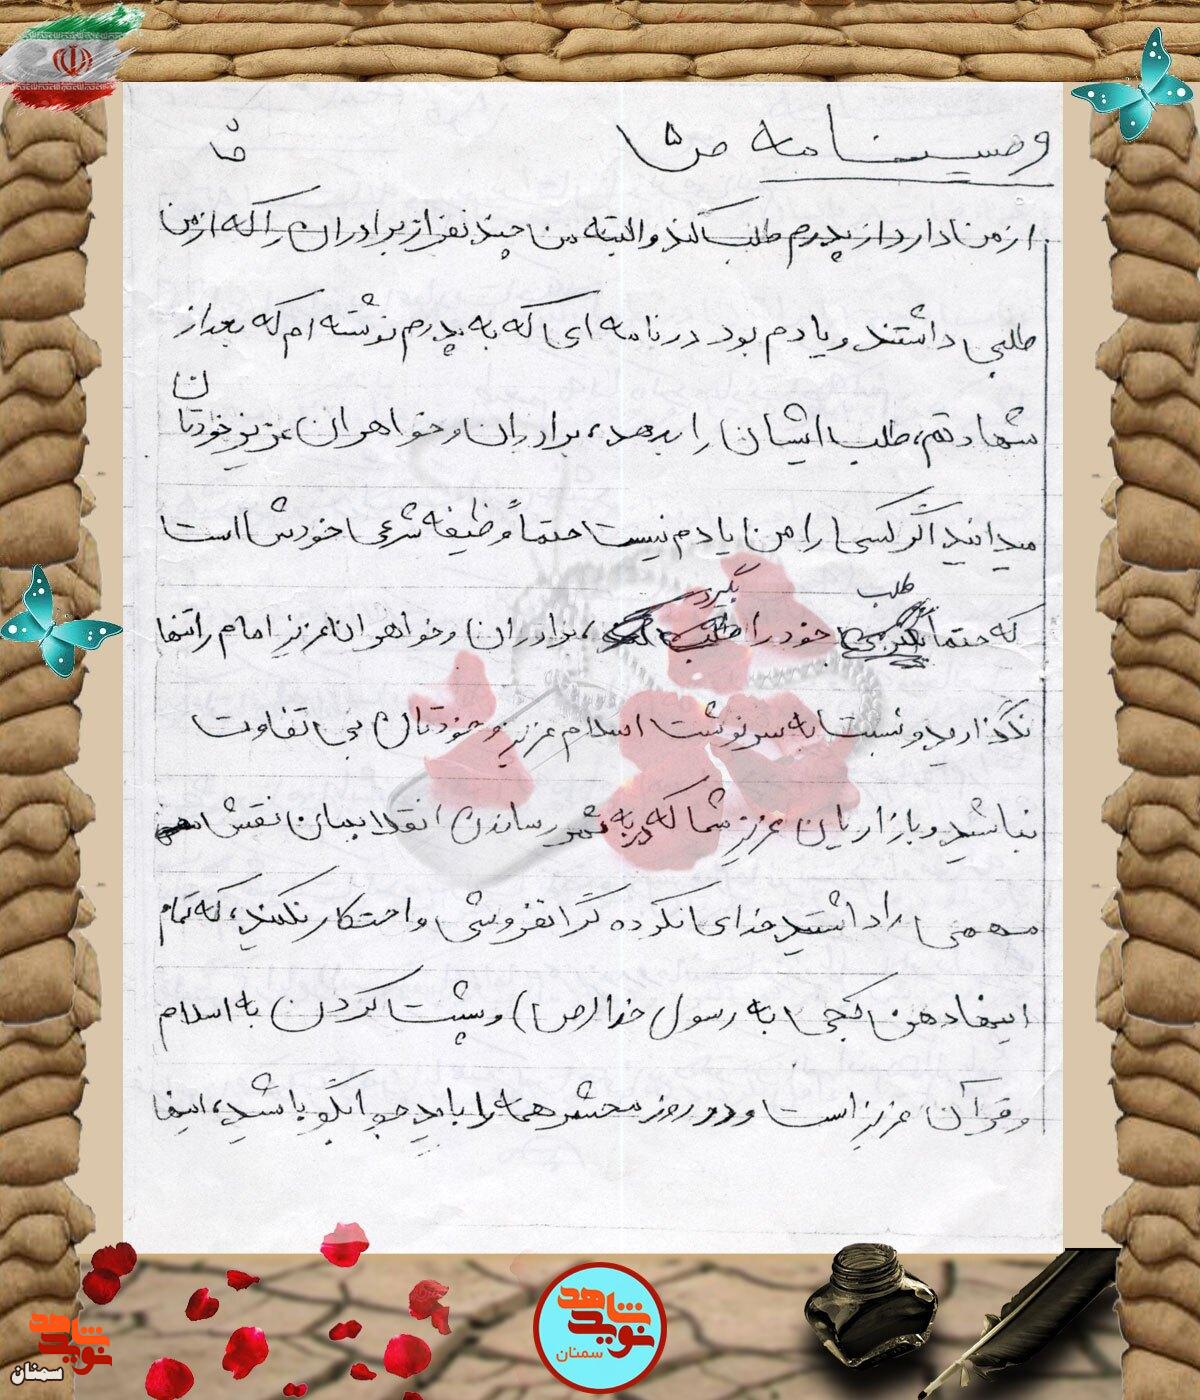 وصیتنامه ص ۵
از من دارد از پدرم طلب کند والبته من چند نفر از برادران را که از من
طلبی داشتند و یادم بود در نامه ای که به پدرم نوشته ام که بعد از
شهادتم، طلب ایشان را بدهد، برادران و خواهران عزیز خودتان
میدانید اگر کسی را من یادم نیست حتماً وظیفه شرعی خودش است
که حتماً طلب خود را بگیرد، برادران و خواهران عزیز امام را تنها
نگذارید و نسبت به سرنوشت اسلام عزیز و خودتان بی تفاوت
نباشید و بازاریان عزیز شما که در به ثمر رساندن انقلابمان نقش
مهمی را داشتید خدای نکرده گرانفروشی و احتکار نکنید، که تمام
اینها دهن کجی به رسول خدا (ص) و پشت کردن به اسلام
و قرآن عزیز است و در روز محشر همه را باید جوابگو باشید، اینها
شاهد
نوید
سمنان
شاهد
نوید
سمنان